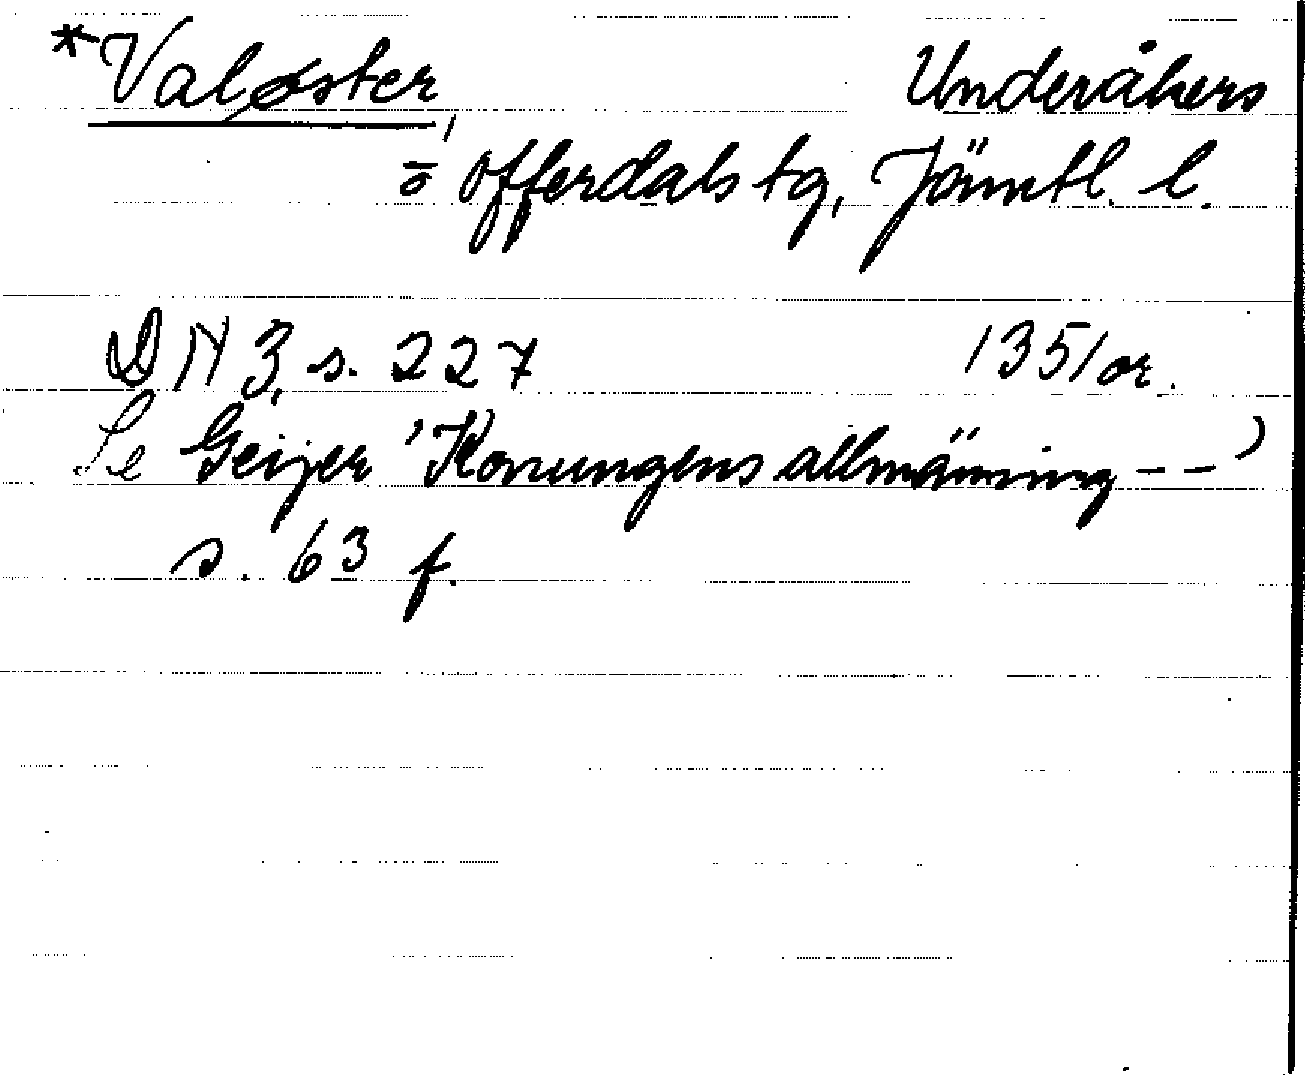 *Valøster, Underåkers
o Offerdals tg, Jämtl. l.
DN 3, s. 227 1351 or.
Se Geijer 'Konungens allmänning - - '
s. 63 f.